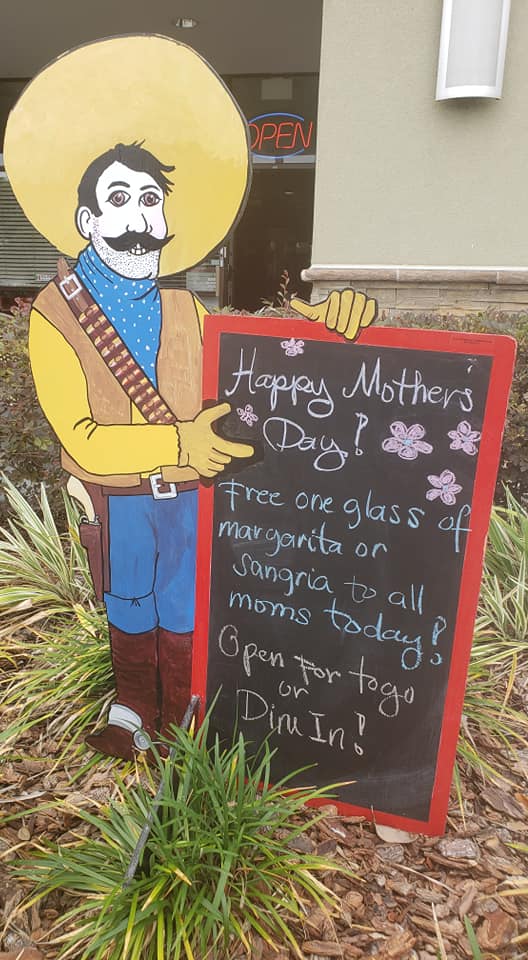 OPEN
Happy Mother's
Day!
Free one glass of
margarita or
Sangria to all
moms today!
Open For togo
or
Dine In!